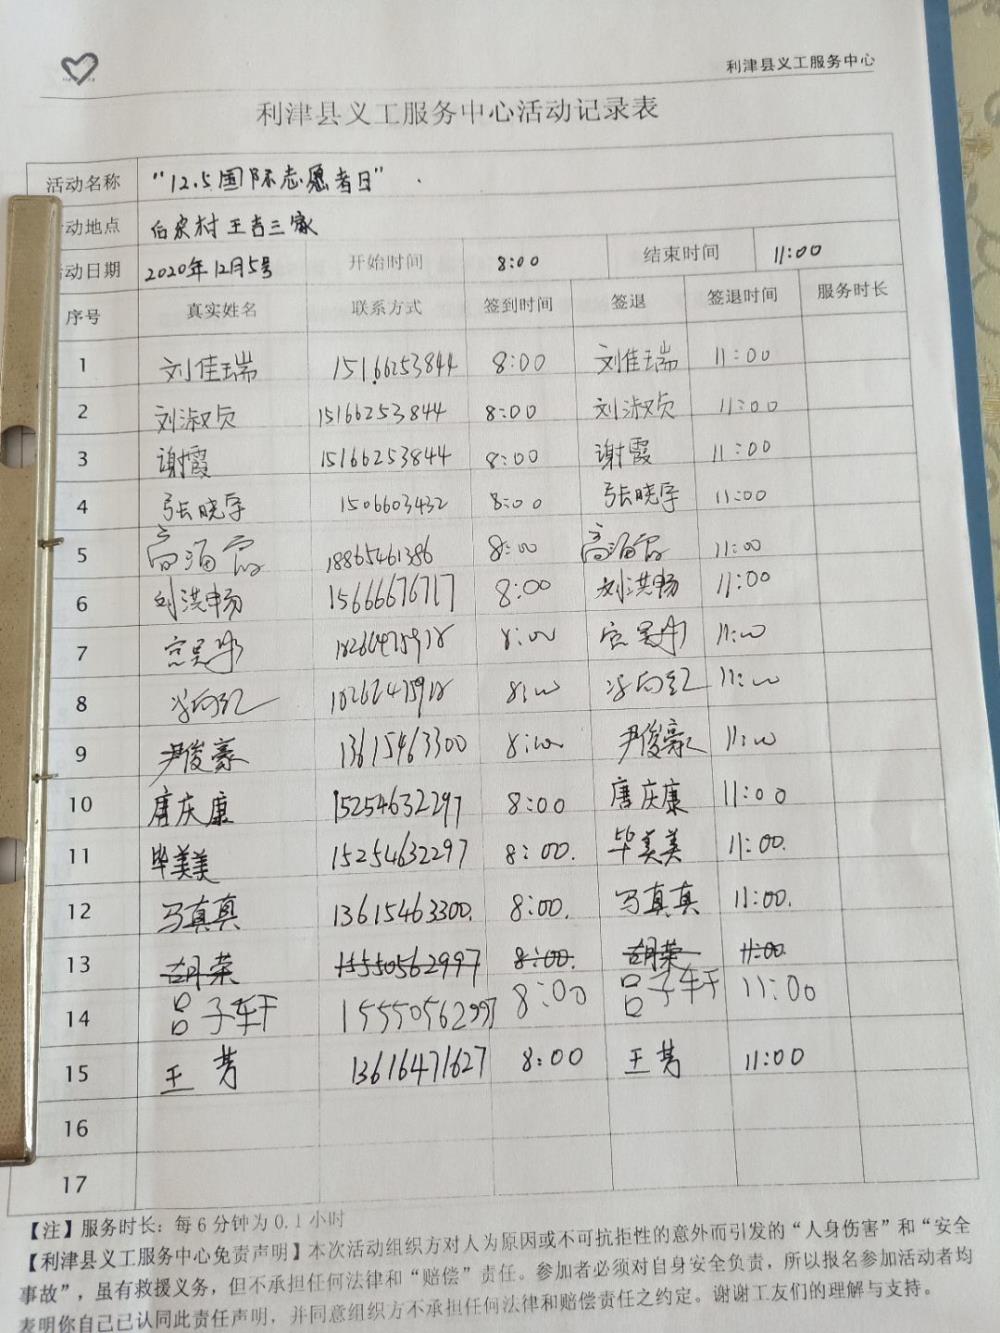 利津县义工服务中心
利津县义工服务中心活动记录表
活动名称 "12.5国际志愿者日"
动地点 后宋村王吉三家
动日期 2020年12月5号 开始时间 8:00 结束时间 11:00
序号 真实姓名 联系方式 签到时间 签退 签退时间 服务时长
1 刘佳瑞 15166253844 8:00 刘佳瑞 11:00
2 刘淑贞 15166253844 8:00 刘淑贞 11:00
3 谢霞 15166253844 8:00 谢霞 11:00
4 张晓宇 1506603432 8:00 张晓宇 11:00
5 18865461386 8:00 11:00
6 刘洪畅 15666676717 8:00 刘洪畅 11:00
7 18266475918 8:00 11:00
8 8:00 11:00
9 尹俊豪 13615463300 8:00 尹俊豪 11:00
10 唐庆康 15254632297 8:00 唐庆康 11:00
11 毕美美 15254632297 8:00. 毕美美 11:00.
12 马真真 13615463300. 8:00. 马真真 11:00.
13 胡荣 15550562997 8:00. 胡荣 11:00
14 吕子轩 15550562997 8:00 吕子轩 11:00
15 王芳 13616471627 8:00 王芳 11:00
16
17
【注】服务时长：每6分钟为0.1小时
【利津县义工服务中心免责声明】本次活动组织方对人为原因或不可抗拒性的意外而引发的“人身伤害”和“安全
事故”，虽有救援义务，但不承担任何法律和“赔偿”责任。参加者必须对自身安全负责，所以报名参加活动者均
表明你自己已认同此责任声明，并同意组织方不承担任何法律和赔偿责任之约定。谢谢工友们的理解与支持。